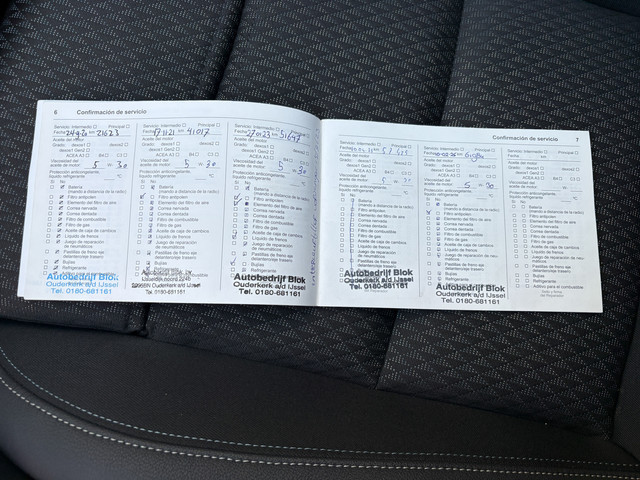 6 Confirmación de servicio
Servicio: Intermedio Principal
Fecha 24-9-20 km 21623
Aceite del motor
Grado: dexos1 dexos2
dexos1 Gen2
ACEA A3 B4 C3
Viscosidad del
aceite de motor: 5 W 30
Protección anticongelante,
líquido refrigerante: °C
Sí No
Batería
(mando a distancia de la radio)
Filtro antipolen
Elemento del filtro de aire
Correa nervada
Correa dentada
Filtro de combustible
Filtro de gas
Aceite de caja de cambios
Líquido de frenos
Juego de reparación
de neumáticos
Pastillas de freno eje
delantero/eje trasero
Bujías
Refrigerante
Autobedrijf Blok
Ouderkerk a/d IJssel
Tel. 0180-681161
Servicio: Intermedio Principal
Fecha 17-11-21 km 41017
Aceite del motor
Grado: dexos1 dexos2
dexos1 Gen2
ACEA A3 B4 C3
Viscosidad del
aceite de motor: 5 W 30
Protección anticongelante,
líquido refrigerante: °C
Sí No
Batería
(mando a distancia de la radio)
Filtro antipolen
Elemento del filtro de aire
Correa nervada
Correa dentada
Filtro de combustible
Filtro de gas
Aceite de caja de cambios
Líquido de frenos
Juego de reparación
de neumáticos
Pastillas de freno eje
delantero/eje trasero
Bujías
Ouderkerk a/d IJssel
Tel. 0180-681161
Servicio: Intermedio Principal
Fecha 27-01-23 km 51647
Aceite del motor
Grado: dexos1 dexos2
dexos1 Gen2
ACEA A3 B4 C3
Viscosidad del
aceite de motor: 5 W 30
Protección anticongelante,
líquido refrigerante: °C
Sí No
Batería
(mando a distancia de la radio)
Filtro antipolen
Elemento del filtro de aire
Correa nervada
Correa dentada
Filtro de combustible
Filtro de gas
Aceite de caja de cambios
Líquido de frenos
Juego de reparación
de neumáticos
Pastillas de freno eje
delantero/eje trasero
Bujías
Autobedrijf Blok
Ouderkerk a/d IJssel
Tel. 0180-681161
Confirmación de servicio 7
Servicio: Intermedio Principal
Aceite del motor
Grado: dexos1 dexos2
dexos1 Gen2
ACEA A3 B4 C3
Viscosidad del
aceite de motor: 5 W 30
Protección anticongelante,
líquido refrigerante: °C
Sí No
Batería
(mando a distancia de la radio)
Filtro antipolen
Elemento del filtro de aire
Correa nervada
Correa dentada
Filtro de combustible
Filtro de gas
Aceite de caja de cambios
Líquido de frenos
Juego de reparación
de neumáticos
Pastillas de freno eje
delantero/eje trasero
Autobedrijf Blok
Ouderkerk a/d IJssel
Tel. 0180-681161
Servicio: Intermedio Principal
Aceite del motor
Grado: dexos1 dexos2
dexos1 Gen2
ACEA A3 B4 C3
Viscosidad del
aceite de motor: 5 W 30
Protección anticongelante,
líquido refrigerante: °C
Sí No
Batería
(mando a distancia de la radio)
Filtro antipolen
Elemento del filtro de aire
Correa nervada
Correa dentada
Filtro de combustible
Filtro de gas
Aceite de caja de cambios
Líquido de frenos
Juego de reparación de neu-
máticos
Pastillas de freno eje
delantero/eje trasero
Bujías
Autobedrijf Blok
Ouderkerk a/d IJssel
Tel. 0180-681161
Servicio: Intermedio Principal
Fecha km
Aceite del motor
Grado: dexos1 dexos2
dexos1 Gen2
ACEA A3 B4 C3
Viscosidad del
aceite de motor: W
Protección anticongelante,
líquido refrigerante: °C
Sí No
Batería
(mando a distancia de la radio)
Filtro antipolen
Elemento del filtro de aire
Correa nervada
Correa dentada
Filtro de combustible
Filtro de gas
Aceite de caja de cambios
Líquido de frenos
Juego de reparación de neu-
máticos
Pastillas de freno eje
delantero/eje trasero
Bujías
Refrigerante
Aditivo para el combustible